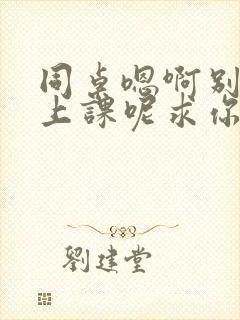 同桌嗯啊别
上課呢求你
劉建堂